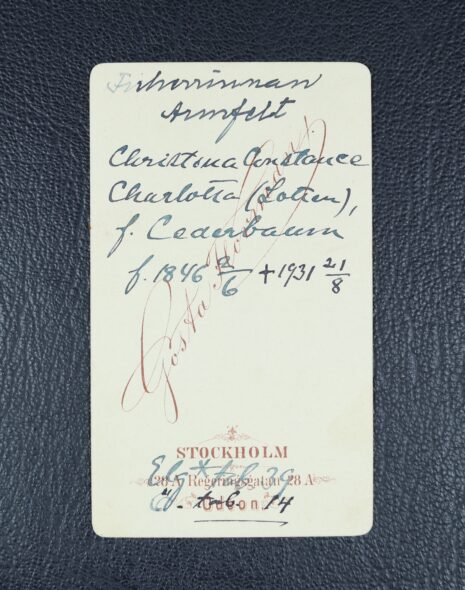 Friherrinnan
Armfelt
Christina Constance
Charlotta (Lotten),
f. Cederbaum
f. 1846 2/6 +1931 21/8
Gösta Florman.
STOCKHOLM
28 A Regeringsgatan 28 A
Elg tab. 39
tab. 14
Odéon.